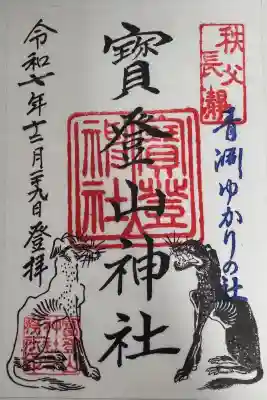 秩父
長瀞
青渊ゆかりの社
寳登山神社
寳登山
神社
令和七年十二月二十九日登拝